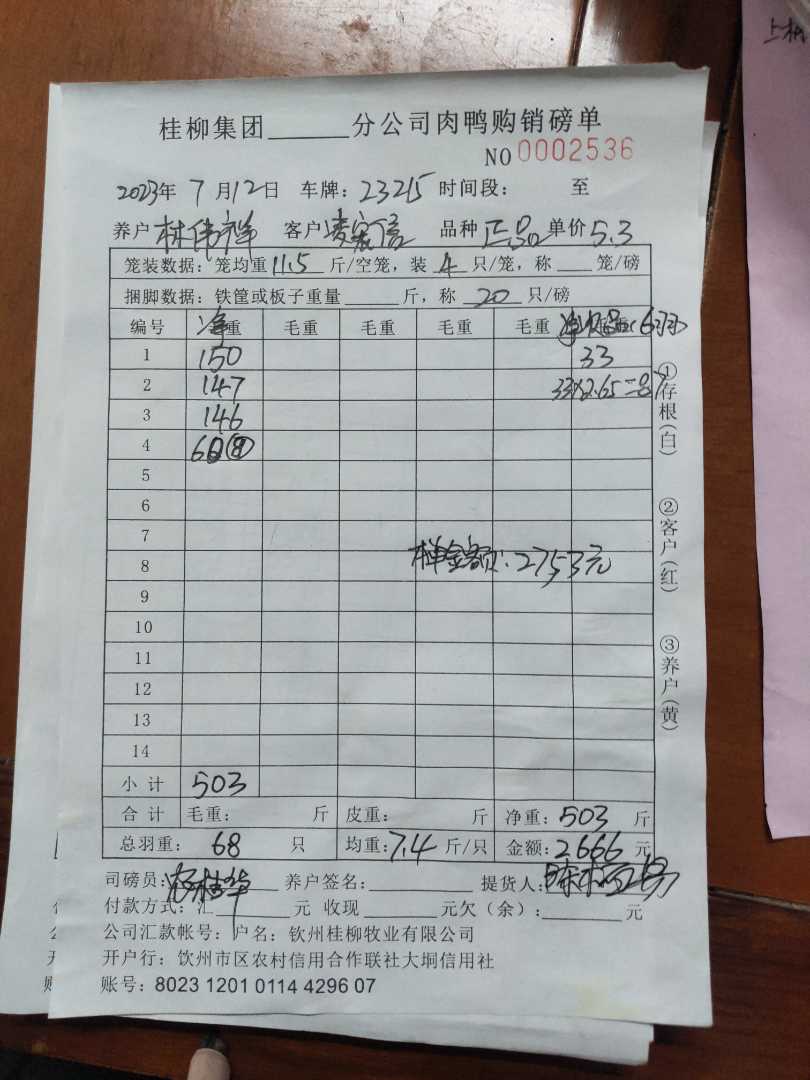 桂柳集团______分公司肉鸭购销磅单
NO 0002536
2023年 7 月 12 日 车牌：23215 时间段： 至
养户 林伟祥 客户 品种 正品 单价 5.3
笼装数据：笼均重 11.5 斤/空笼，装 4 只/笼，称 ___ 笼/磅
捆脚数据：铁筐或板子重量______斤，称 20 只/磅
编号 净重 毛重 毛重 毛重 毛重
1 150 33
2 147 33×2.65=87
3 146
4 60 (8)
5
6
7
8 单金额：2753元
9
10
11
12
13
14
小 计 503
合 计 毛重： 斤 皮重： 斤 净重：503 斤
总羽重： 68 只 均重：7.4 斤/只 金额：2666 元
司磅员： 养户签名：__________ 提货人：
付款方式：汇______元 收现______元欠（余）：______元
公司汇款帐号：户名：钦州桂柳牧业有限公司
开户行：钦州市区农村信用合作联社大垌信用社
账号：8023 1201 0114 4296 07
①存根(白)
②客户(红)
③养户(黄)